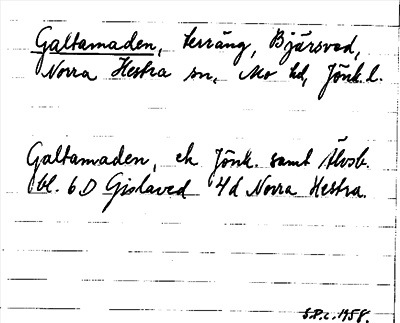 Galtamaden, terräng, Bjärsved,
Norra Hestra sn, Mo hd, Jönk. l.
Galtamaden, ek Jönk. samt Älvsb.
bl. 6 D Gislaved 4d Norra Hestra.
S.P.c. 1958.